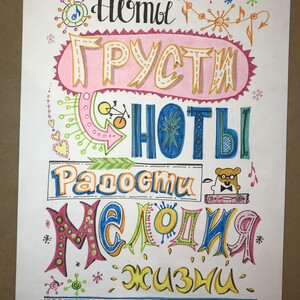 Ноты
ГРУСТИ
НОТЫ
Радости
Мелодия
жизни